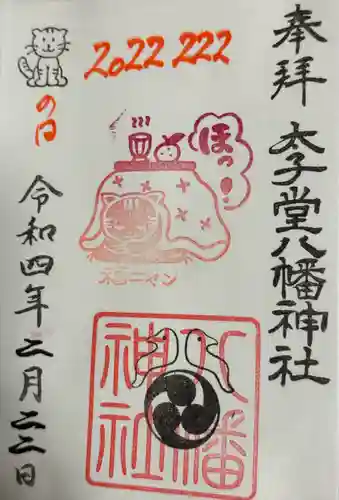 奉拝
太子堂八幡神社
2022 222
の日
ほっ!
ニャン
八幡
神社
令和四年二月二二日